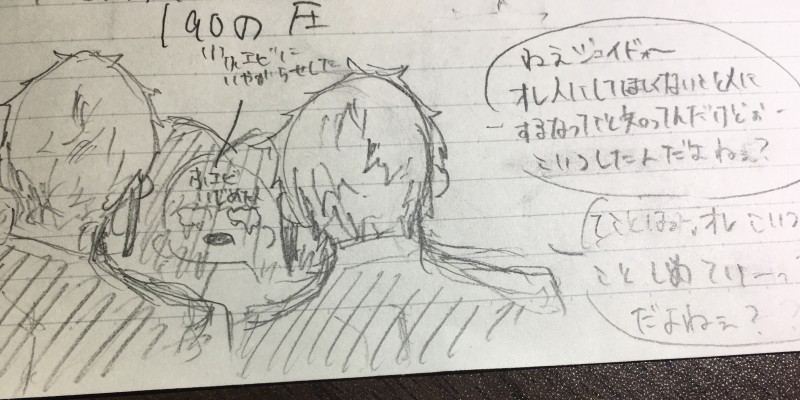 190の圧
小エビに
いやがらせした
小エビ
いじめた
ねぇジェイドォ〜
オレ人にしてほしくないこと人に
するなってこと知ってんだけどぉー
こいつしたんだよねぇ?
てことはぁ、オレ こいつ
こと しめていーっ
だよねぇ?